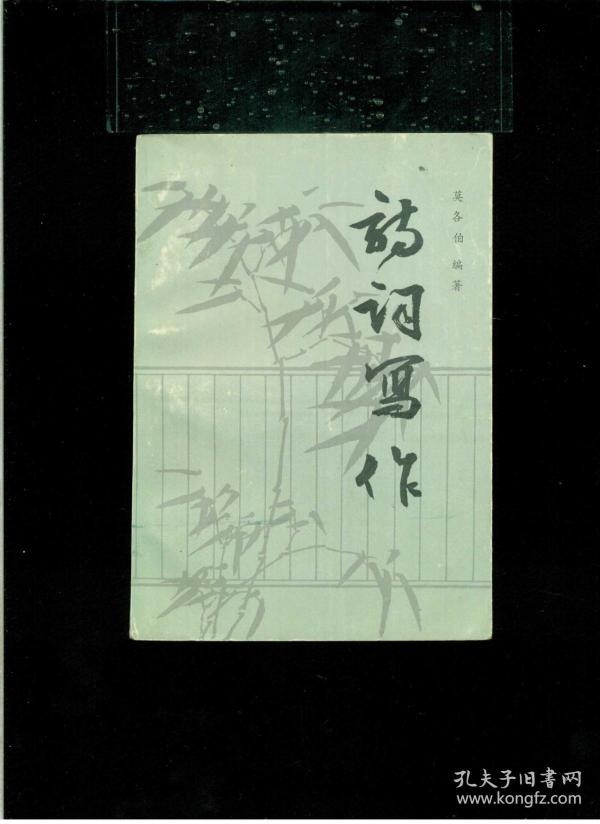 莫各伯 编著
诗词写作
孔夫子旧书网
www.kongfz.com